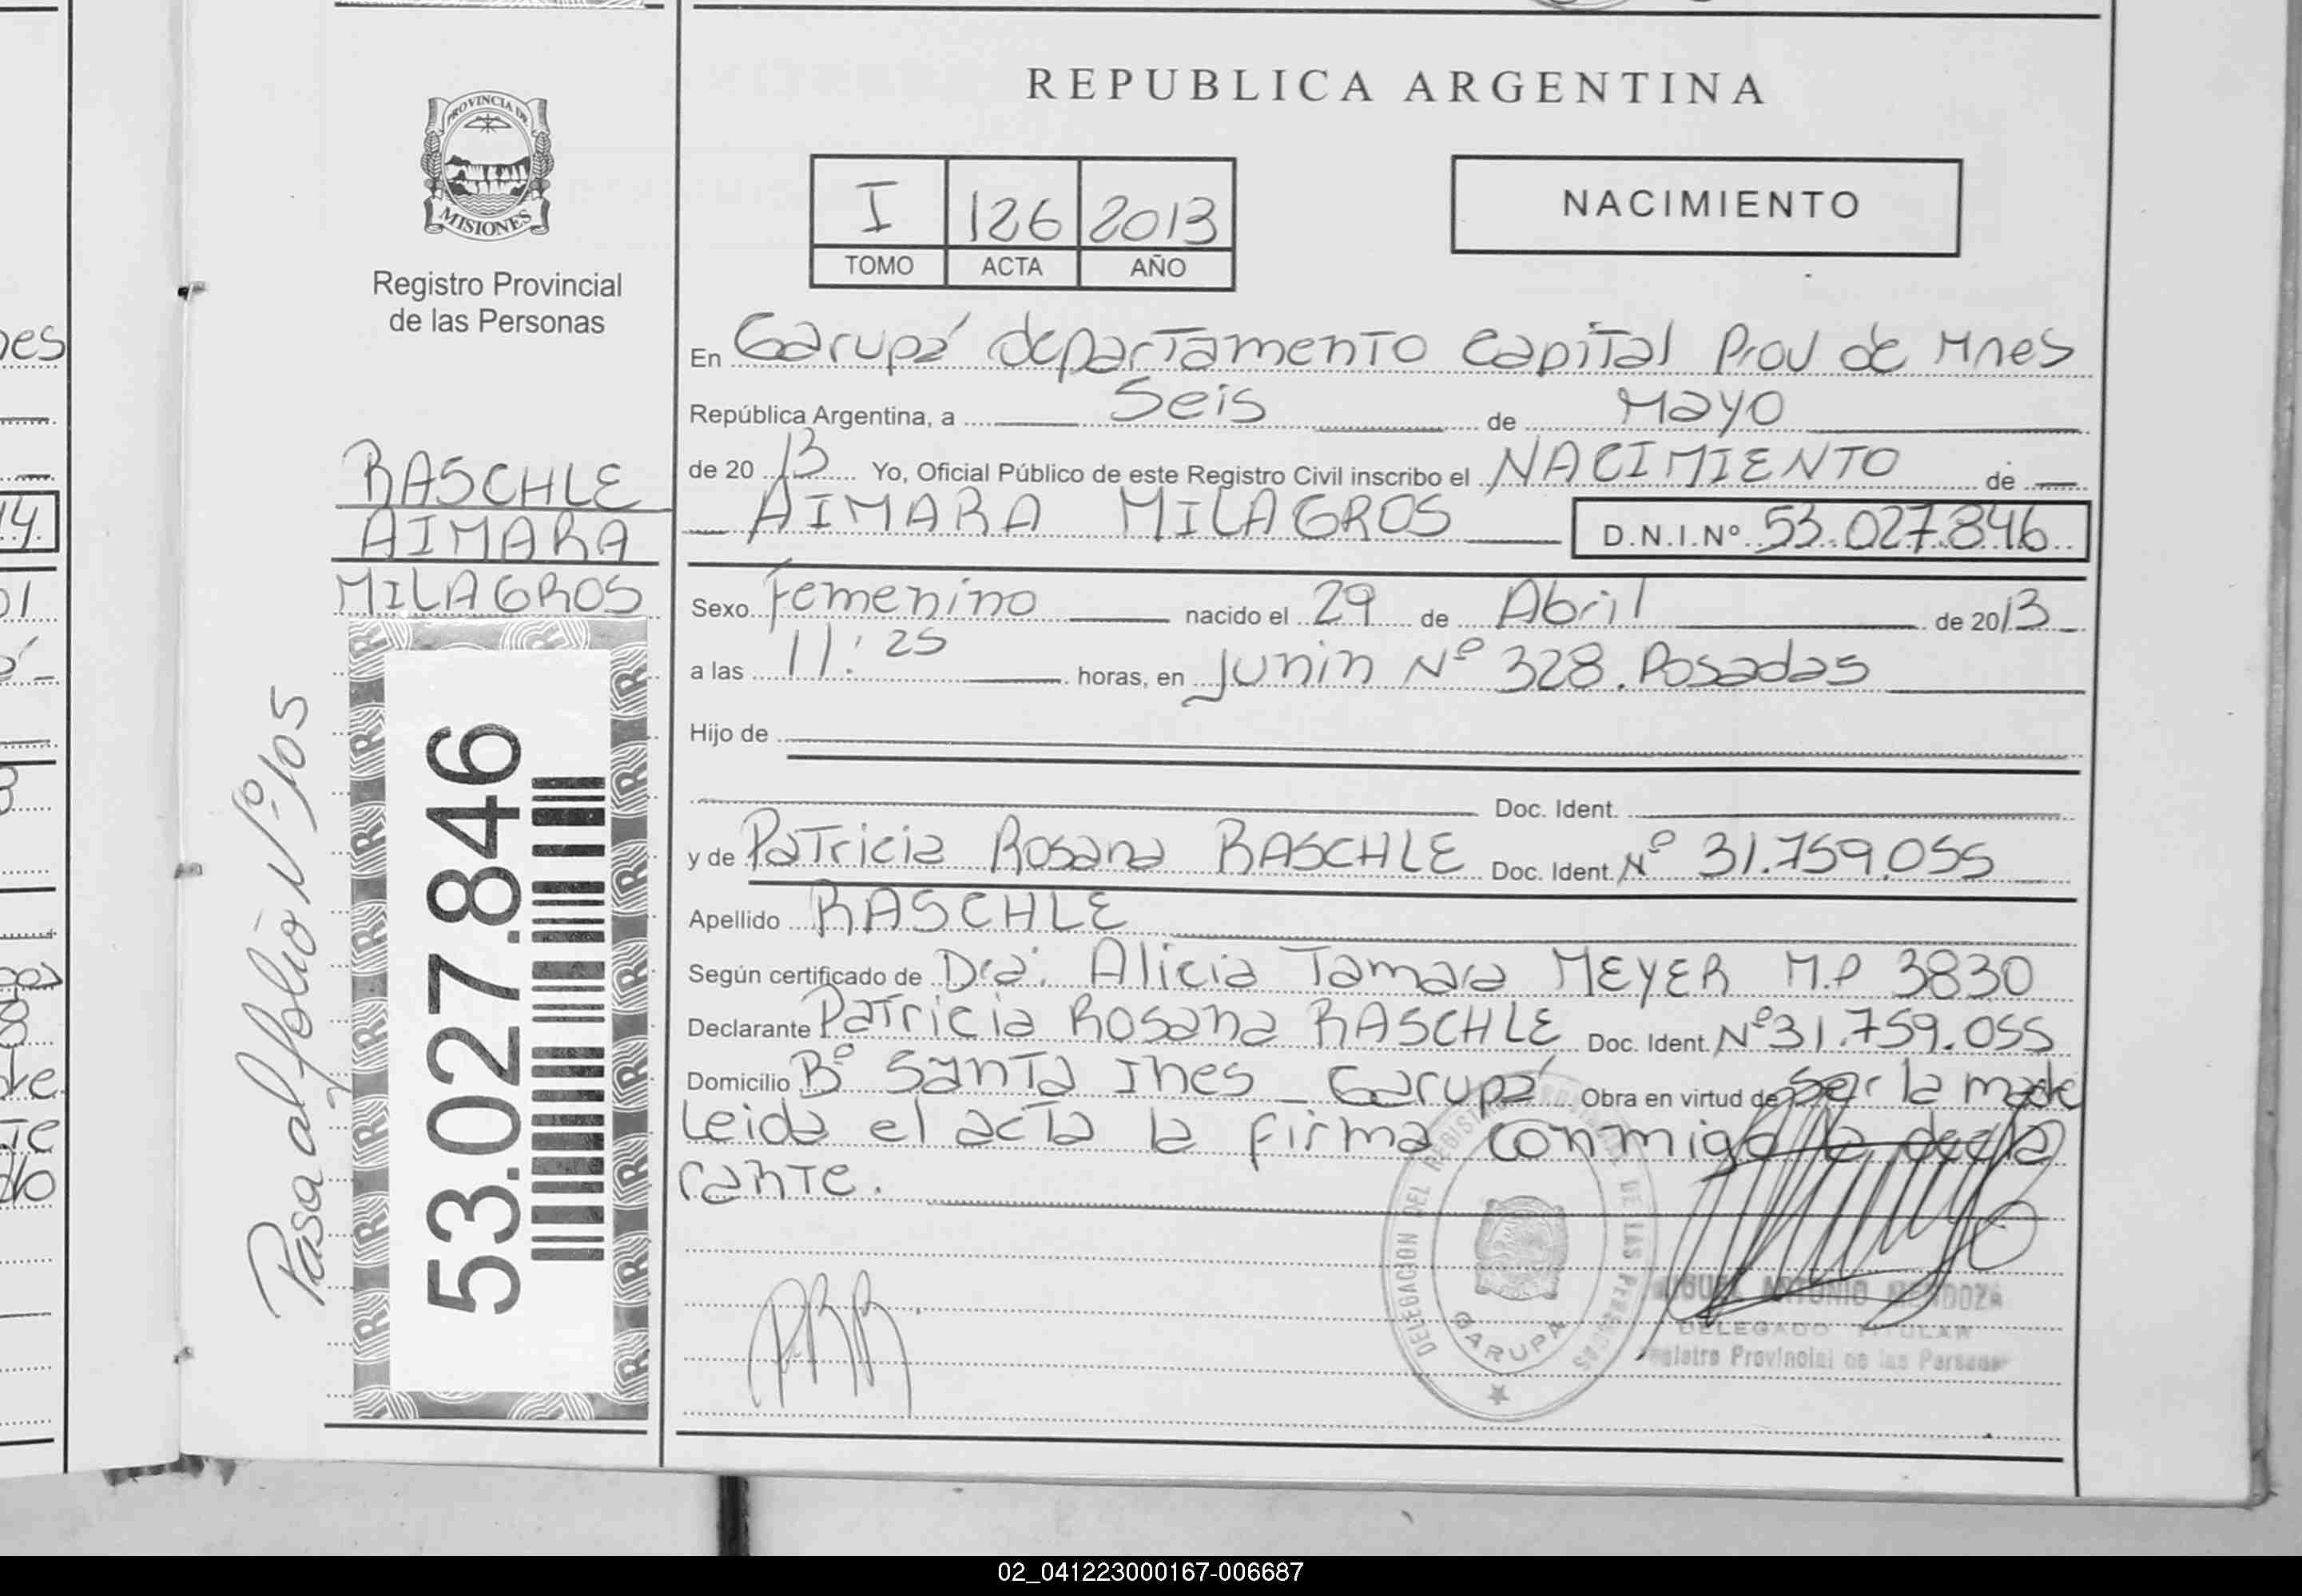 REPUBLICA ARGENTINA
PROVINCIA DE
MISIONES
Registro Provincial
de las Personas
I 126 2013
TOMO ACTA AÑO
NACIMIENTO
En Garupá departamento Capital Prov de Mnes
República Argentina, a Seis de Mayo
de 2013 Yo, Oficial Público de este Registro Civil inscribo el NACIMIENTO de
AIMARA MILAGROS D.N.I.Nº 53.027.846
Sexo Femenino nacido el 29 de Abril de 2013
a las 11:25 horas, en Junin Nº 328. Posadas
Hijo de
Doc. Ident.
y de Patricia Rosana RASCHLE Doc. Ident. Nº 31.759.055
Apellido RASCHLE
Según certificado de Dra. Alicia Tamara MEYER M.P 3830
Declarante Patricia Rosana RASCHLE Doc. Ident. Nº 31.759.055
Domicilio Bº Santa Ines - Garupá Obra en virtud de Ser la madre
Leida el acta la firma conmigo la decla
rante.
RASCHLE
AIMARA
MILAGROS
53.027.846
Pasa al folio Nº 105
DELEGACION DEL REGISTRO DE LAS PERSONAS
GARUPA
MIGUEL ANTONIO MENDOZA
DELEGADO TITULAR
Registro Provincial de las Personas
PRR
02_041223000167-006687